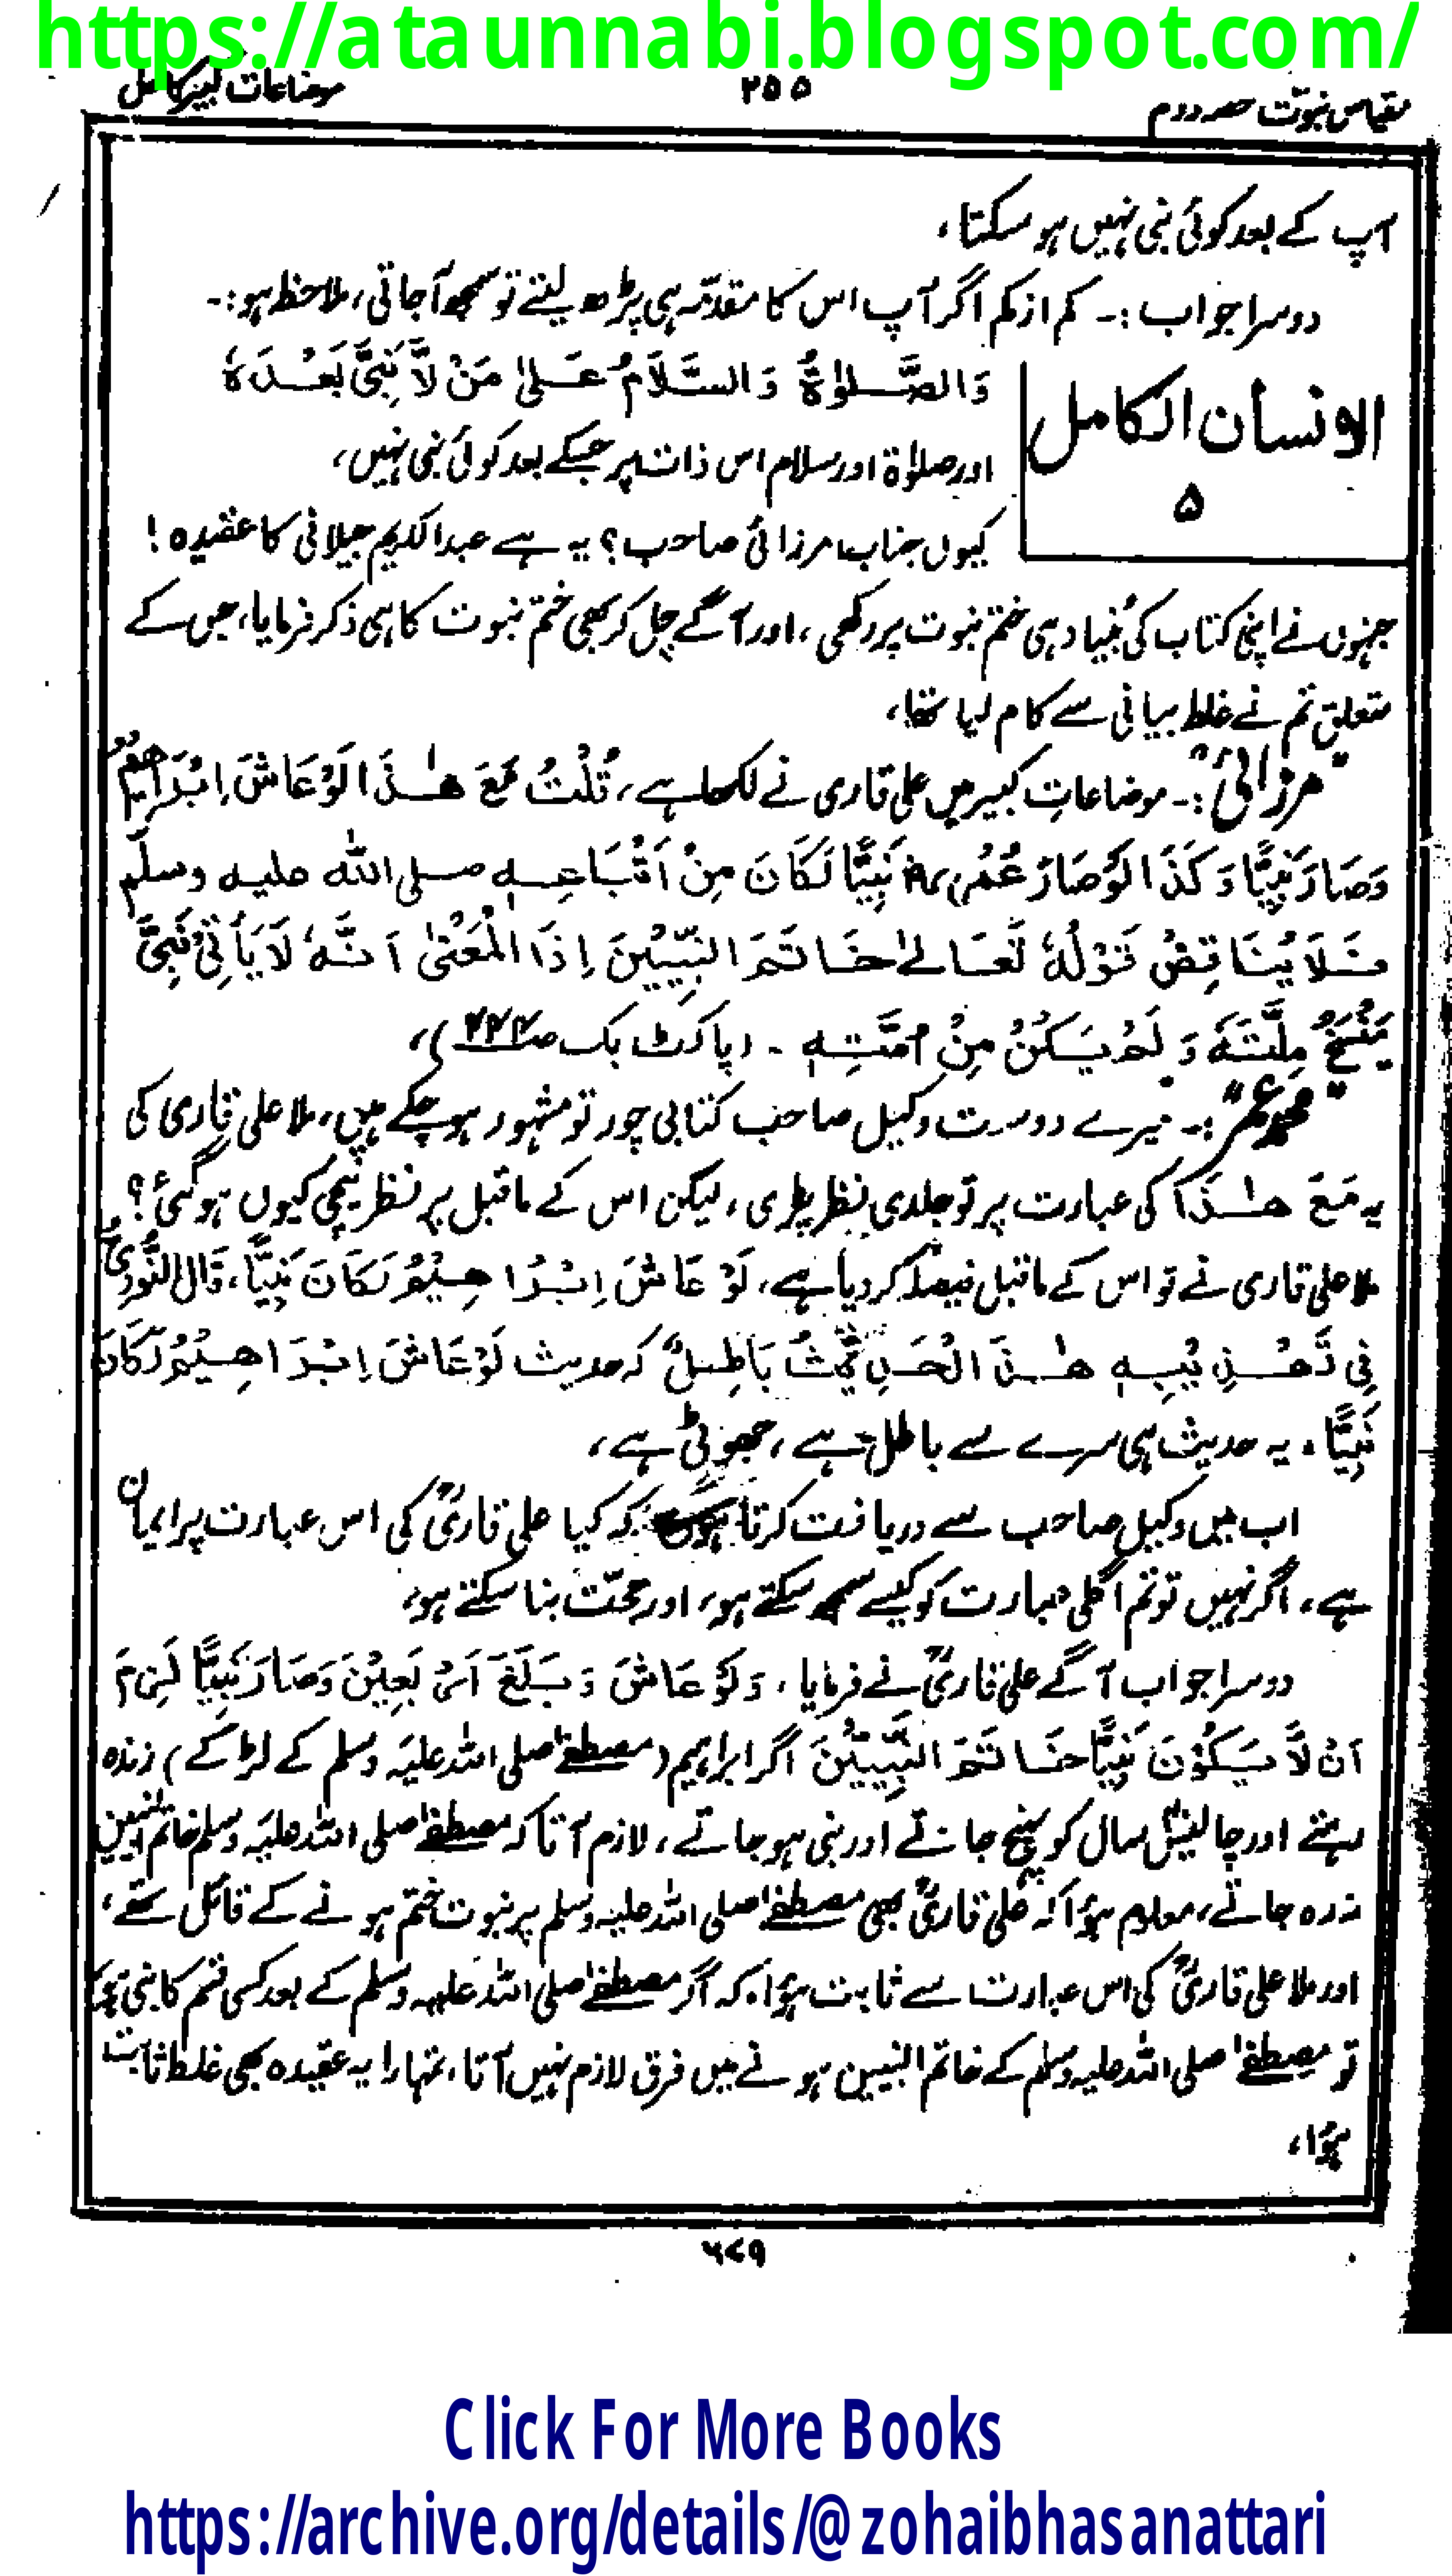 https://ataunnabi.blogspot.com/
مقیاس نبوّت حصہ دوم
۲۵۵
موضاعات کبیر کامل
آپ کے بعد کوئی نبی نہیں ہو سکتا،
دوسرا جواب :۔ کم از کم اگر آپ اس کا مقدّمہ ہی پڑھ لیتے تو سمجھ آجاتی، ملاحظہ ہو :۔
الانسان الکامل
۵
وَالصَّلوٰۃُ وَالسَّلَامُ عَلیٰ مَنْ لَّا نَبِیَّ بَعْدَہٗ
اور صلوٰۃ اور سلام اس ذات پر جسکے بعد کوئی نبی نہیں،
کیوں جناب مرزائی صاحب؟ یہ ہے عبدالکریم جیلانی کا عقیدہ!
جنہوں نے اپنی کتاب کی بُنیاد ہی ختم نبوت پر رکھی، اور آگے چل کر بھی ختم نبوت کا ہی ذکر فرمایا، جس کے
متعلق تم نے غلط بیانی سے کام لیا تھا،
"مرزائی" :۔ موضاعاتِ کبیر میں علی قاری نے لکھا ہے، قُلْتُ مَعَ ھٰذَا لَوْ عَاشَ اِبْرَاھِیْمُ
وَصَارَ نَبِیًّا وَ کَذَا لَوْ صَارَ عُمَرُ نَبِیًّا لَکَانَ مِنْ اَتْبَاعِہٖ صلی اللہ علیہ وسلم
فَلَا یُنَاقِضُ قَوْلُہٗ تَعَالیٰ خَاتَمَ النَّبِیّیْنَ اِذَا الْمَعْنیٰ اَنَّہٗ لَا یَأْتِیْ نَبِیٌّ
یَنْسَخُ مِلَّتَہٗ وَ لَمْ یَکُنْ مِنْ اُمَّتِہٖ ۔ (پاکٹ بک صـ)،
"محمد عمر" :۔ میرے دوست وکیل صاحب کتابی چور تو مشہور ہو چکے ہیں، ملا علی قاری کی
یہ مَعَ ھٰذَا کی عبارت پر تو جلدی نظر پڑی، لیکن اس کے ماقبل پر نظر نیچی کیوں ہو گئی؟
ملا علی قاری نے تو اس کے ماقبل فیصلہ کر دیا ہے، لَوْ عَاشَ اِبْرَاھِیْمُ لَکَانَ نَبِیًّا، قَالَ النَّوْوِیُّ
فِی تَھْذِیْبِہٖ ھٰذَا الْحَدِیْثُ بَاطِلٌ کہ حدیث لَوْ عَاشَ اِبْرَاھِیْمُ لَکَانَ
نَبِیًّا۔ یہ حدیث ہی سرے سے باطل ہے، جھوٹی ہے،
اب میں وکیل صاحب سے دریافت کرتا ہوں کہ کیا علی قاریؒ کی اس عبارت پر ایمان
ہے، اگر نہیں تو تم اگلی عبارت کو کیسے سمجھ سکتے ہو، اور حجّت بنا سکتے ہو،
دوسرا جواب آگے علی قاریؒ نے فرمایا، وَ لَوْ عَاشَ وَ بَلَغَ اَرْبَعِیْنَ وَصَارَ نَبِیًّا لَزِمَ
اَنْ لَّا یَکُوْنَ نَبِیًّا خَاتَمَ النَّبِیّیْنَ اگر ابراہیم (مصطفےٰ صلی اللہ علیہ وسلم کے لڑکے) زندہ
رہتے اور چالیسؔ سال کو پہنچ جاتے اور نبی ہو جاتے، لازم آتا کہ مصطفےٰ صلی اللہ علیہ وسلم خاتم النبیین
نہ رہ جاتے، معلوم ہؤا کہ علی قاریؒ بھی مصطفےٰ صلی اللہ علیہ وسلم پر نبوت ختم ہونے کے قائل تھے،
اور ملا علی قاریؒ کی اس عبارت سے ثابت ہؤا۔ کہ اگر مصطفےٰ صلی اللہ علیہ وسلم کے بعد کسی قسم کا نبی
تو مصطفےٰ صلی اللہ علیہ وسلم کے خاتم النبیین ہونے میں فرق لازم نہیں آتا، تمہارا یہ عقیدہ بھی غلط ثابت
ہؤا،
۶۷۹
Click For More Books
https://archive.org/details/@zohaibhasanattari